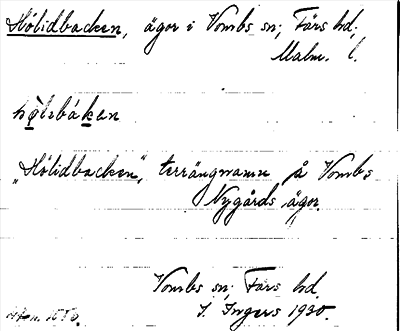 Hölidbacken, ägor i Vombs sn; Färs hd;
Malm. l.
hǫ̀lɩbákan
„Hölidbacken“, terrängnamn på Vombs
Nygårds ägor.
Vombs sn; Färs hd.
I. Ingers 1930.